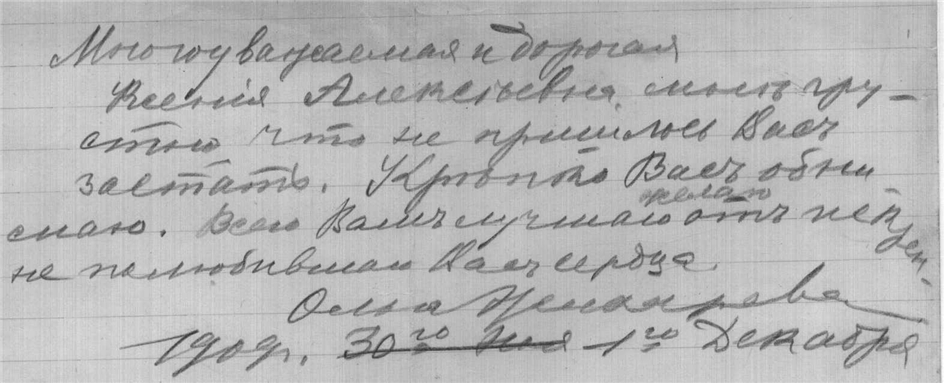 Многоуважаемая и дорогая
Ксенія Алексѣевна, мнѣ гру-
стно что не пришлось Васъ
застать. Крѣпко Васъ обни
маю. Всего Вамъ лучшаго желаю отъ искрен-
не полюбившаго Васъ сердца.
Ольга
1909г. 30го 1го Декабря